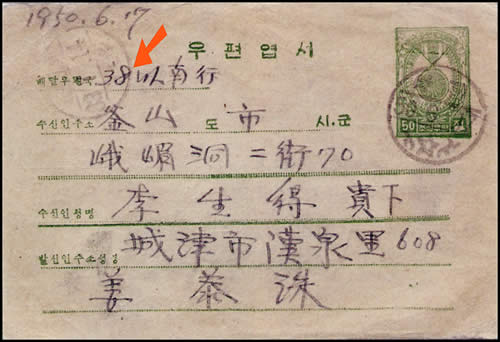 1950.6.17
우편엽서
배달우편국 38以南行
수신인주소 釜山 도 市 시.군
峨嵋洞二街70
수신인성명 李生得 貴下
城津市漢泉里608
발신인주소성명
姜泰洙
50